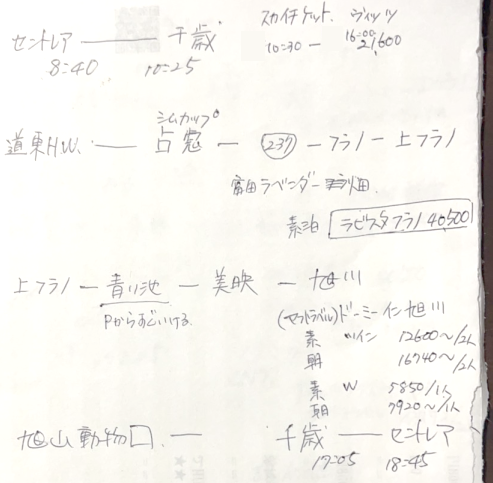 スカイチケット. ヴィッツ
セントレア ― 千歳 10:30 ― 16:00 21,600
8:40 10:25
シムカップ
道東H.W. ― 占冠 ― 237 ― フラノ ― 上フラノ
富田ラベンダー畑.
素泊 ラビスタフラノ 40,500
上フラノ ― 青い池 ― 美映 ― 旭川
Pからすぐいける. (ヤフトラベル)ドーミーイン旭川
素 ツイン 12600～/2人
朝 16740～/2人
素 W 5850/1人
朝 7920～/1人
旭山動物口. ― 千歳 ― セントレア
17:05 18:45